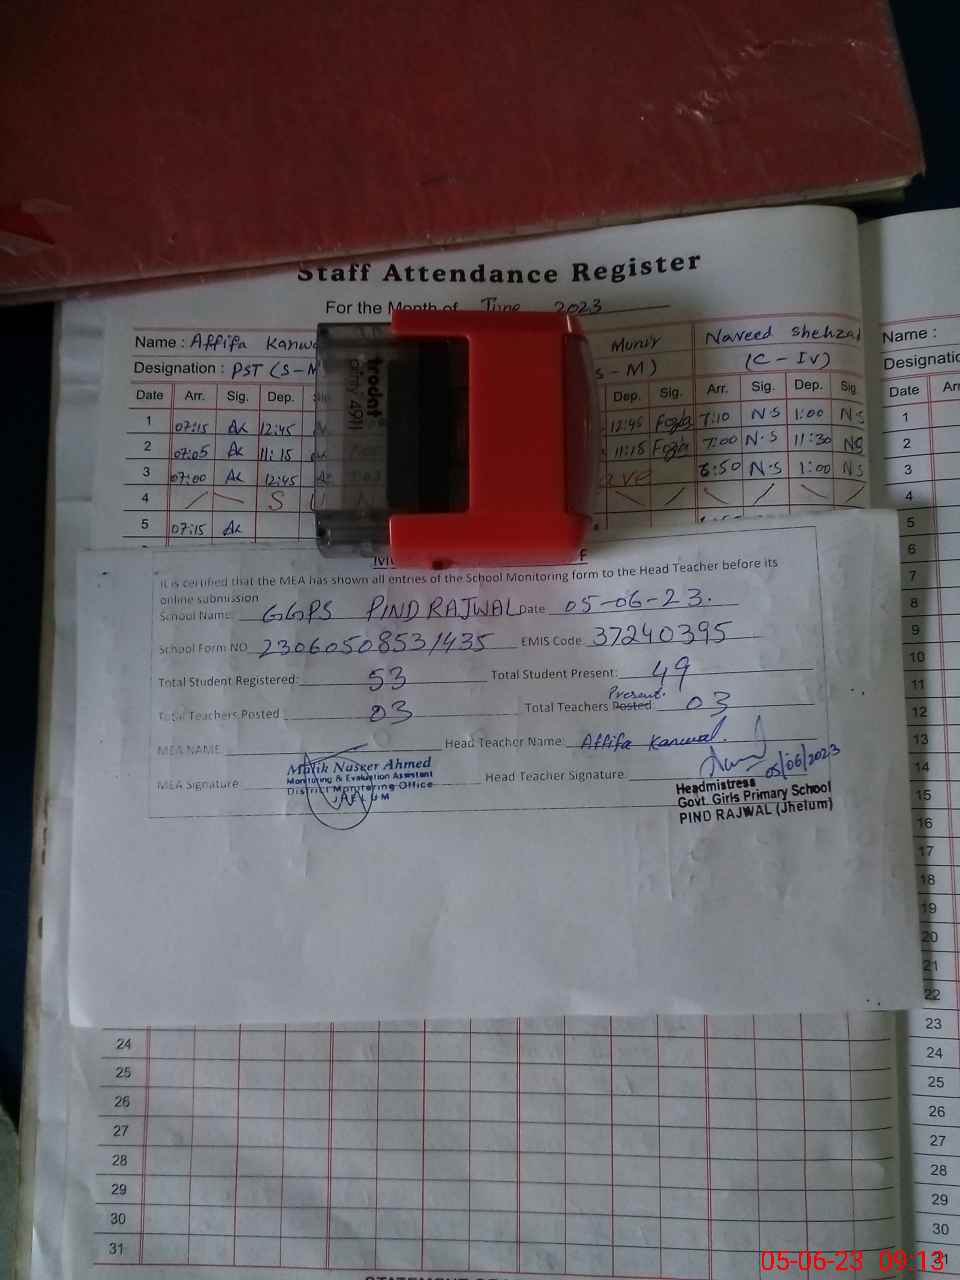 Staff Attendance Register
For the Month of June 2023
Name : Affifa Munir Naveed Shehzad Name :
Designation : PST (S-M S-M) (C-IV)
Date Arr. Sig. Dep. Dep. Sig. Arr. Sig. Dep. Sig. Date
1 07:15 AK 12:45 12:45 Fozia 7:10 N.S 1:00 N.S 1
2 07:05 AK 11:15 11:15 Fozia 7:00 N.S 11:30 NS 2
3 07:00 AK 12:45 6:50 N.S 1:00 NS 3
4 S U 4
5 07:15 AK 5
trodat
printy 4911
It is certified that the MEA has shown all entries of the School Monitoring form to the Head Teacher before its
online submission
School Name: GGPS PIND RAJWAL Date 05-06-23.
School Form NO 23060508531435 EMIS Code: 37240395
Total Student Registered: 53 Total Student Present: 49
Total Teachers Posted 03 Total Teachers Posted Present. 03
MEA NAME Head Teacher Name: Affifa Kanwal.
MEA Signature Head Teacher Signature. 05/06/2023
Malik Naseer Ahmed
Monitoring & Evaluation Assistant
District Monitoring Office
JHELUM
Headmistress
Govt. Girls Primary School
PIND RAJWAL (Jhelum)
6
7
8
9
10
11
12
13
14
15
16
17
18
19
20
21
22
23
24 24
25 25
26 26
27 27
28 28
29 29
30 30
31 31
05-06-23 09:13